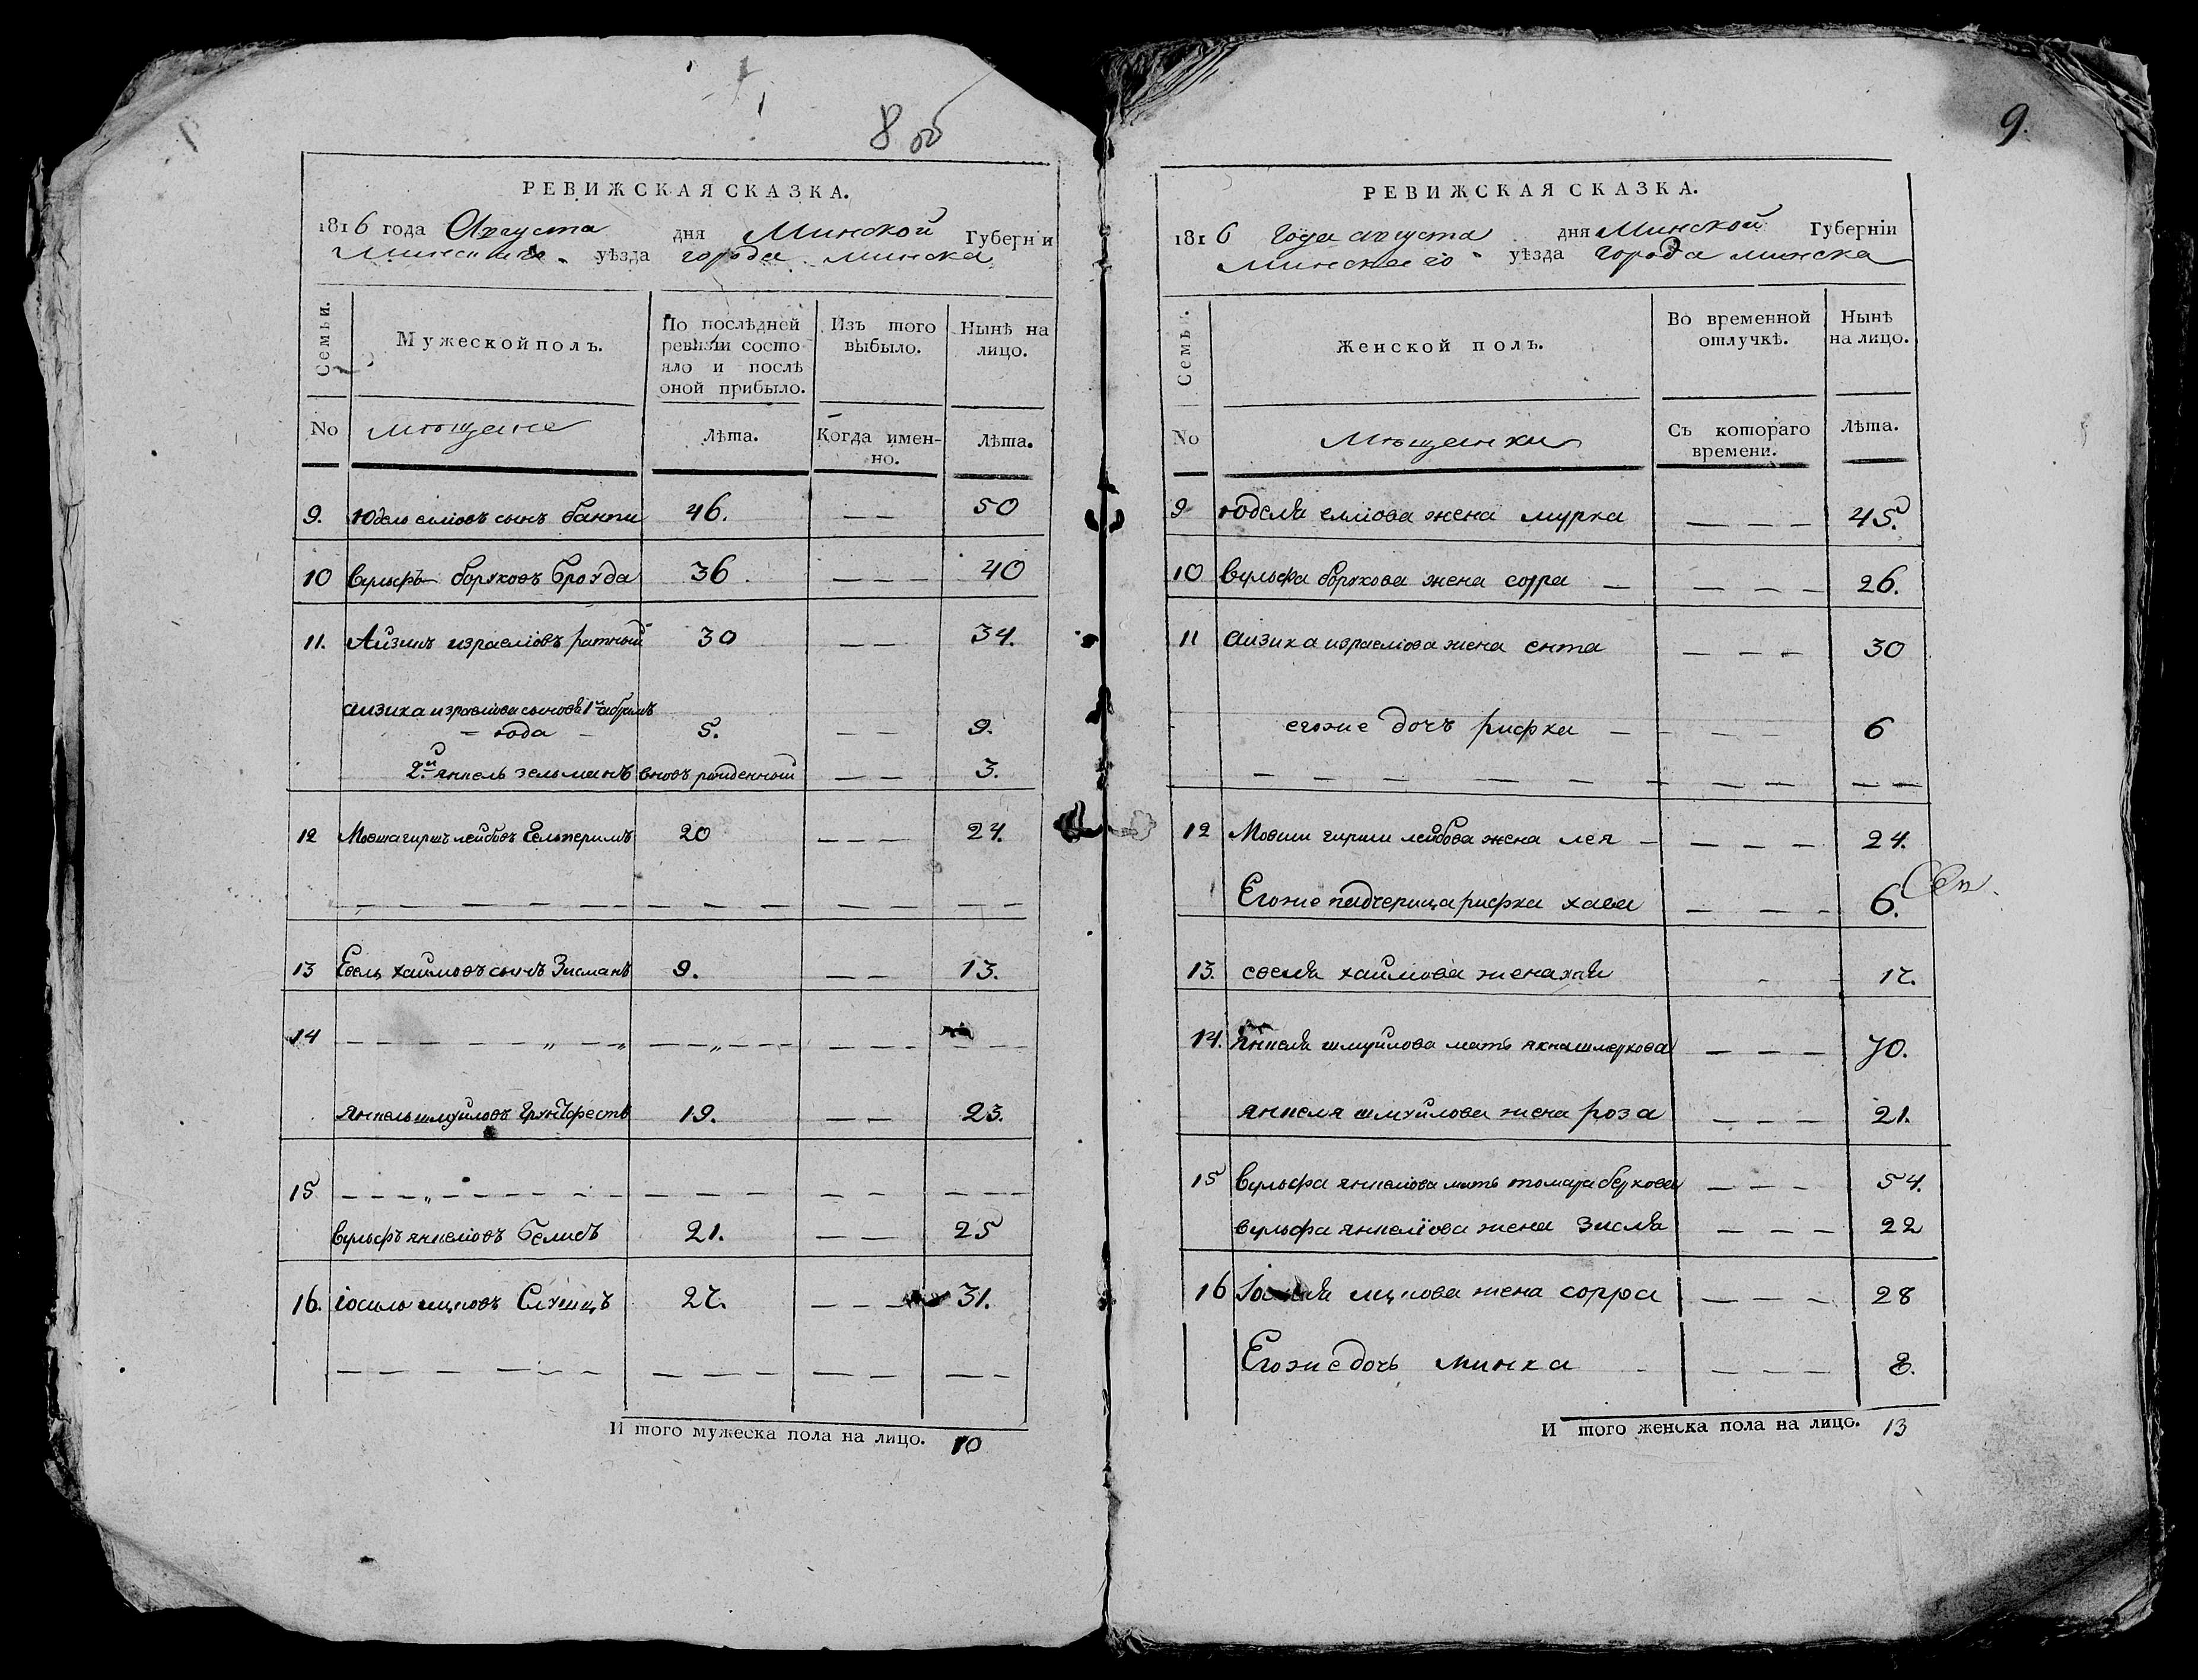 8 об
РЕВИЖСКАЯ СКАЗКА.
1816 года Августа дня Минской Губерніи
Минскаго уѣзда города Минска
Семьи.
Мужеской полъ.
По послѣдней ревизіи состояло и послѣ оной прибыло.
Изъ того выбыло.
Нынѣ на лицо.
No
мѣщане
Лѣта.
Когда именно.
Лѣта.
9. Юдель еліовъ сынъ 46. — — 50
10 Вульфъ боруховъБроуда 36. — — — 40
11. Айзикъ израеліовъ ратный 30 — — 34.
айзика израеліова сыновья 1й абрамъ
юда 5. — — 9.
2й янкель зельманъ вновь рожденный — — 3.
12 Мовша гиршъ лейбовъ Гельперинъ 20 — — — 24.
13 хаимовъ сынъ Зисманъ 9. — — 13.
14
Янкель шмуйловъ Грунтфестъ 19. — — 23.
15
Вульфъ янкеліовъ 21. — — 25
16. Іосиль ицковъ Слуцкъ 27. — — — 31.
И того мужеска пола на лицо. 10
9.
РЕВИЖСКАЯ СКАЗКА.
1816 Года августа дня Минской Губерніи
Минскаго уѣзда Города минска
Семьи.
Женской полъ.
Во временной отлучкѣ.
Нынѣ на лицо.
No
Мѣщанки
Съ котораго времени.
Лѣта.
9 юделя еліова жена мурка — — — 45.
10 Вульфа борухова жена сорра — — — — 26.
11 айзика израеліова жена ента — — — 30
егоже дочъ рифка — — — — 6
12 Мовши гирши лейбова жена лея — — — — 24.
Егоже падчерица рифка хава — — — 6.
13. хаимова жена хая 17.
14. Янкеля шмуйлова мать — — — 70.
янкеля шмуйлова жена роза — — — 21.
15 Вульфа янкеліова мать томара беркова — — — 54.
вульфа янкеліова жена Зисля — — — 22
16 ицкова жена сорра — — — 28
Егоже дочь минка — — — 8.
И того женска пола на лицо. 13